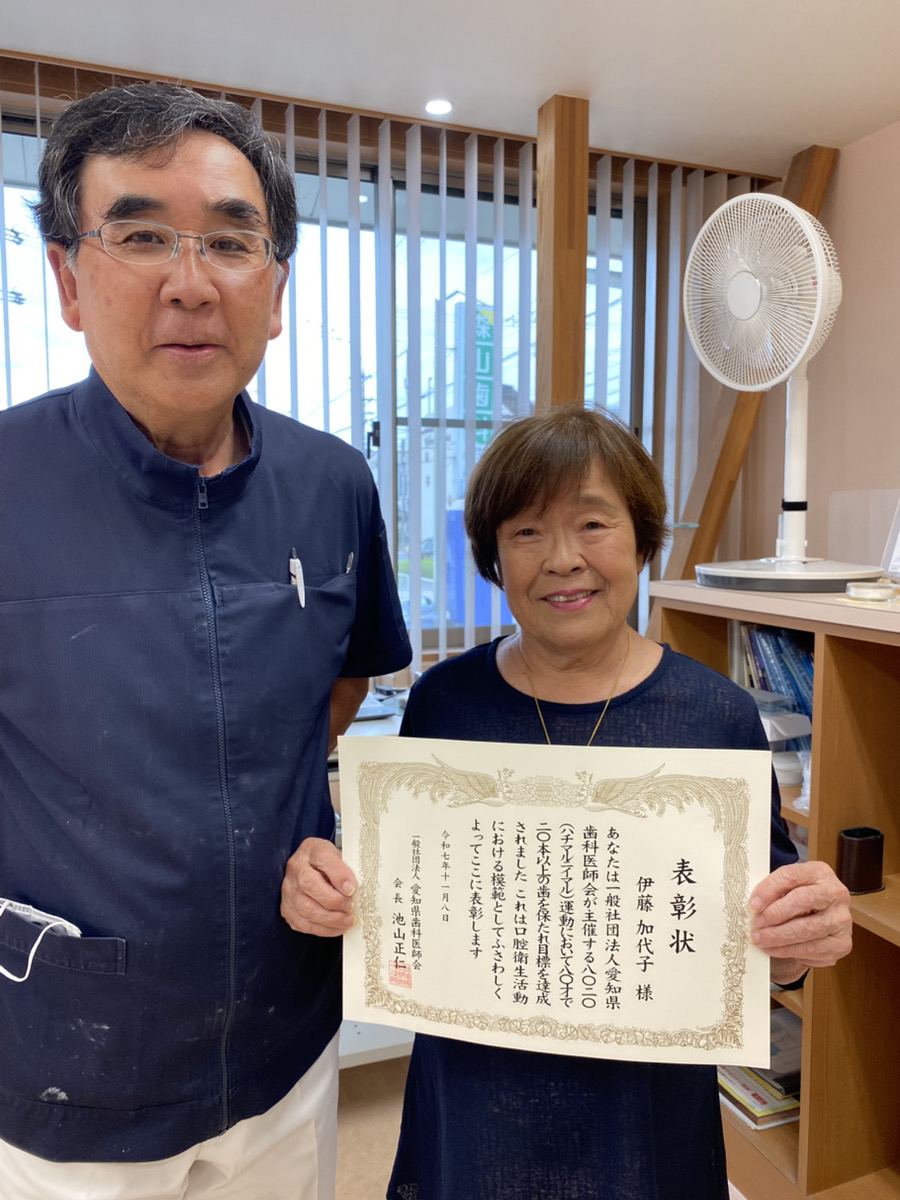 表彰状
伊藤 加代子 様
あなたは一般社団法人愛知県
歯科医師会が主催する八〇二〇
(ハチマルニイマル)運動において八〇才で
二〇本以上の歯を保たれ目標を達成
されました これは口腔衛生活動
における模範としてふさわしく
よってここに表彰します
令和七年十一月八日
一般社団法人 愛知県歯科医師会
会長 池山正仁